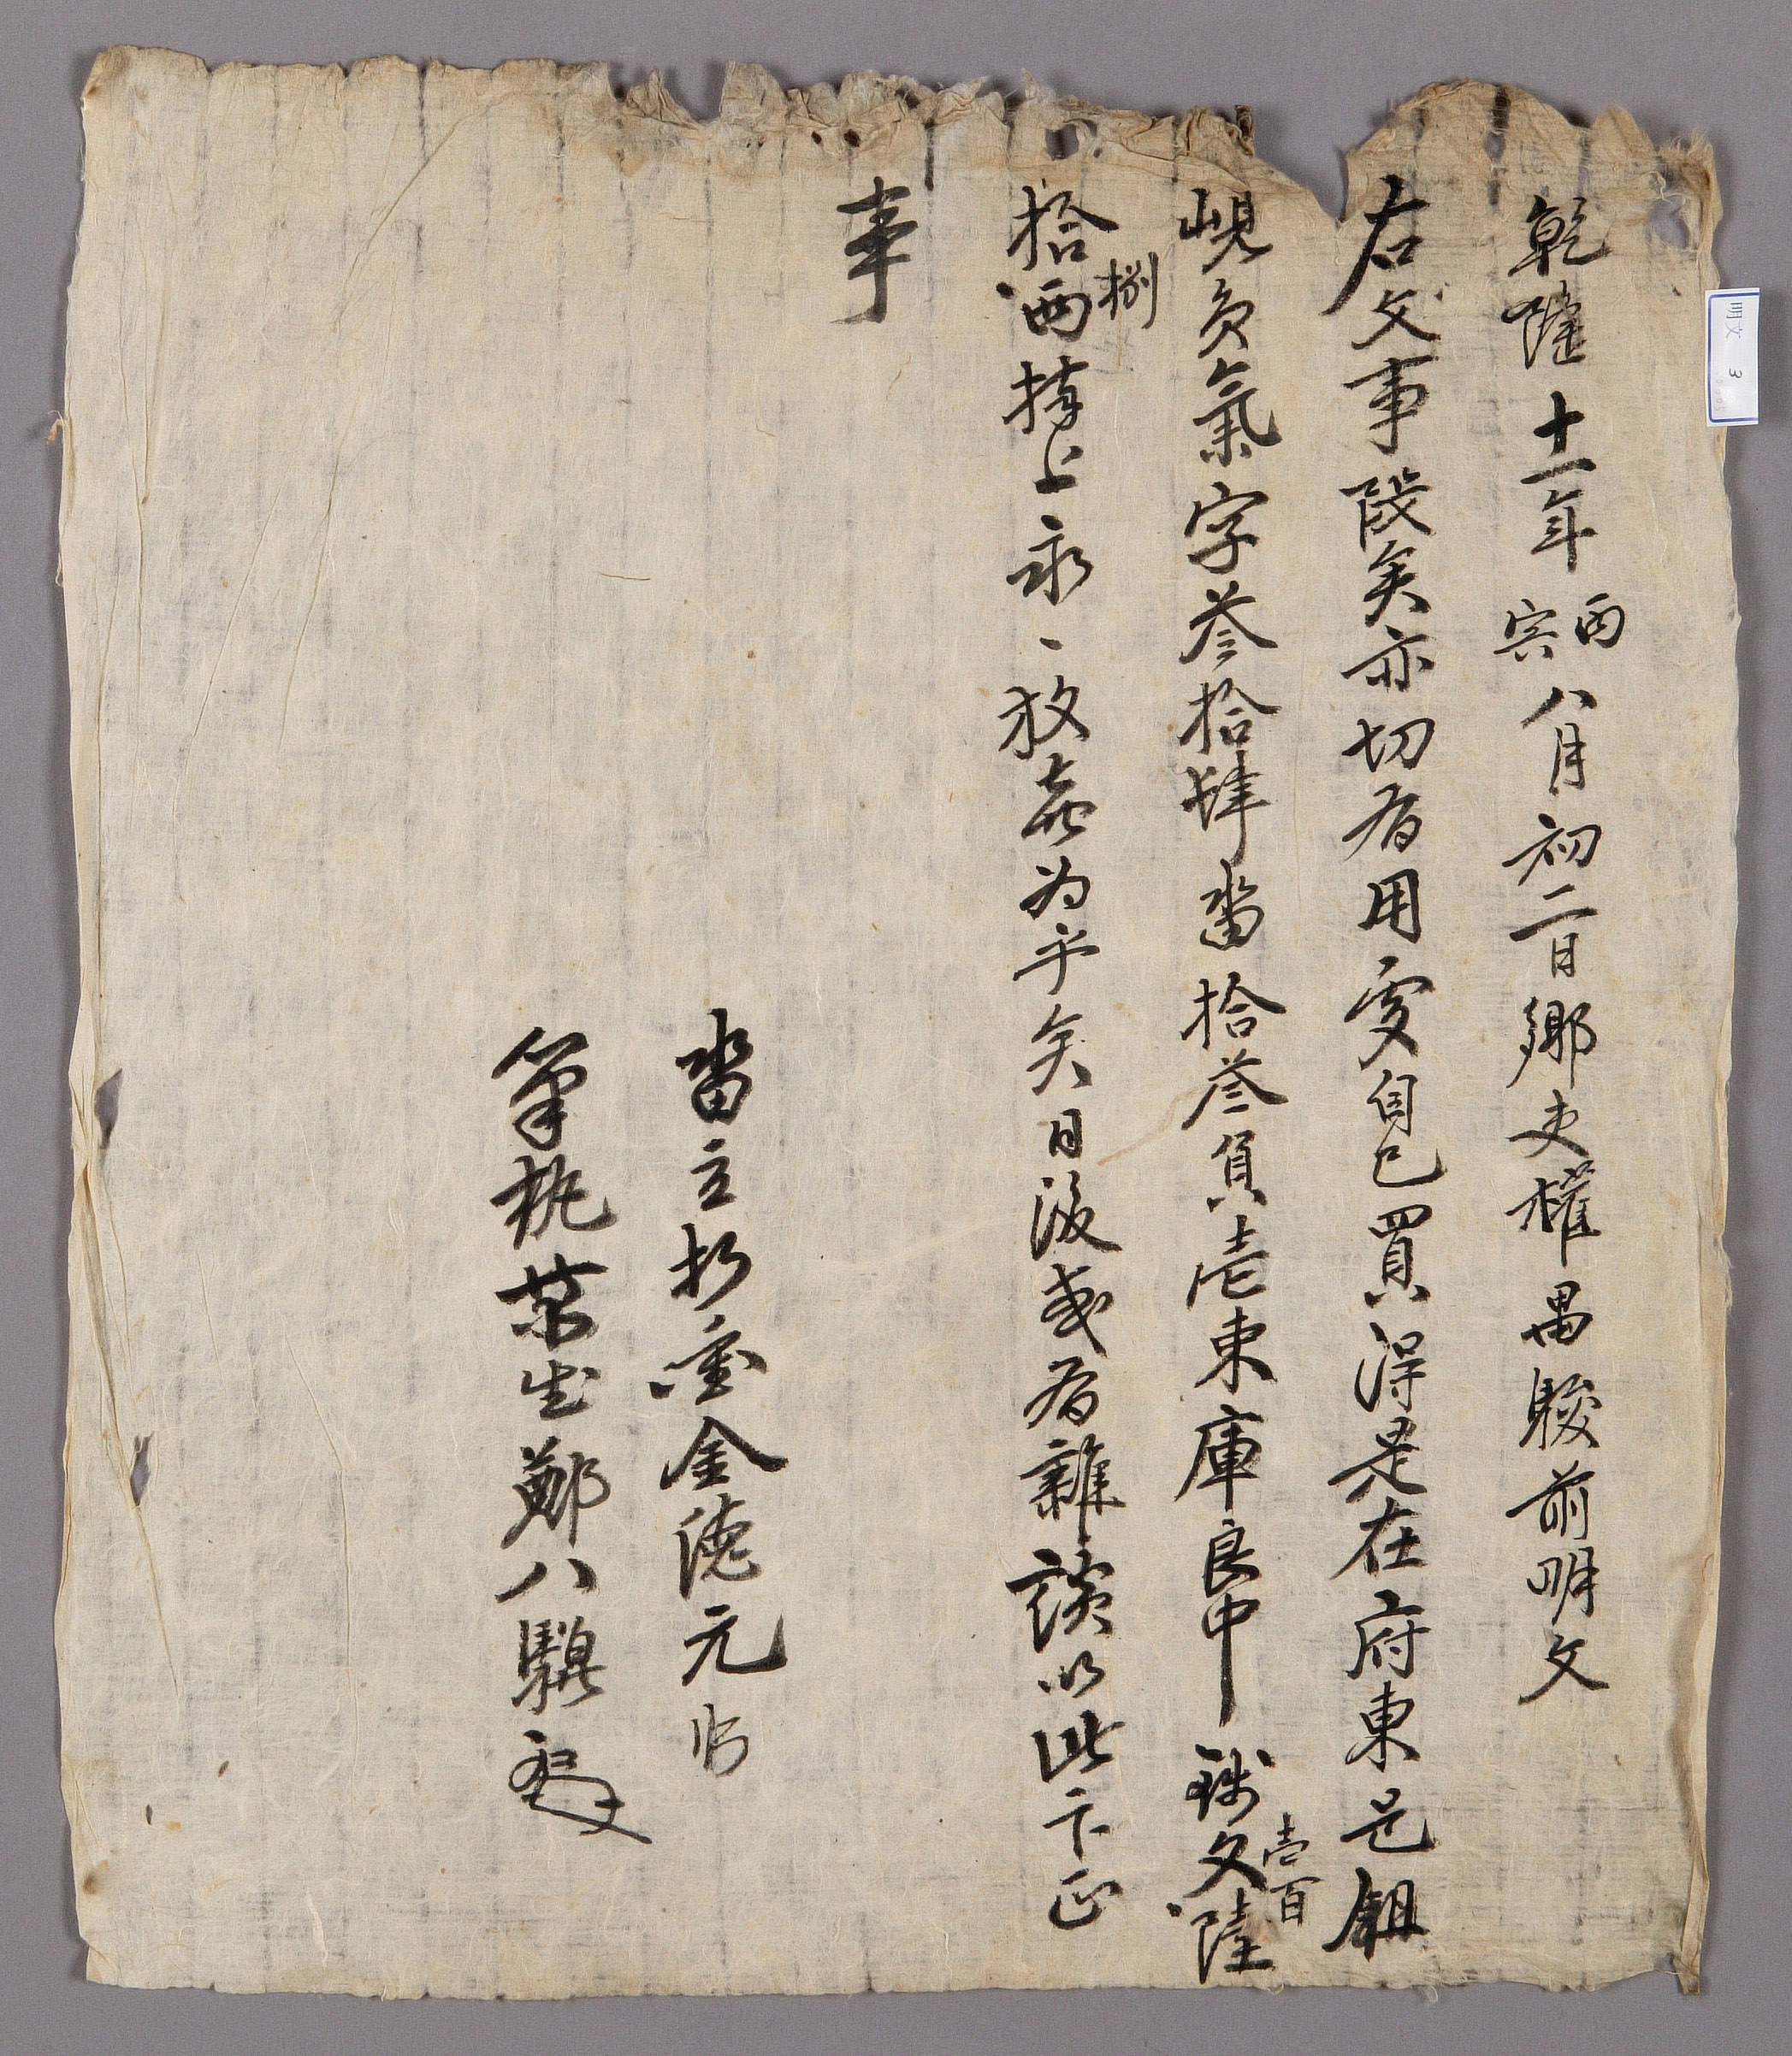 乾隆十一年丙寅八月初二日鄕吏權禺駿前明文
右文事段矣亦切有用處自己買得是在府東邑鉏
峴員氣字叄拾肆畓拾叄負壹束庫良中錢文壹百陸
拾捌兩捧上永〻放賣爲乎矣日後或有雜談以此卞正
事
畓主折衝金德元
筆執業生鄭八騏
明文 3